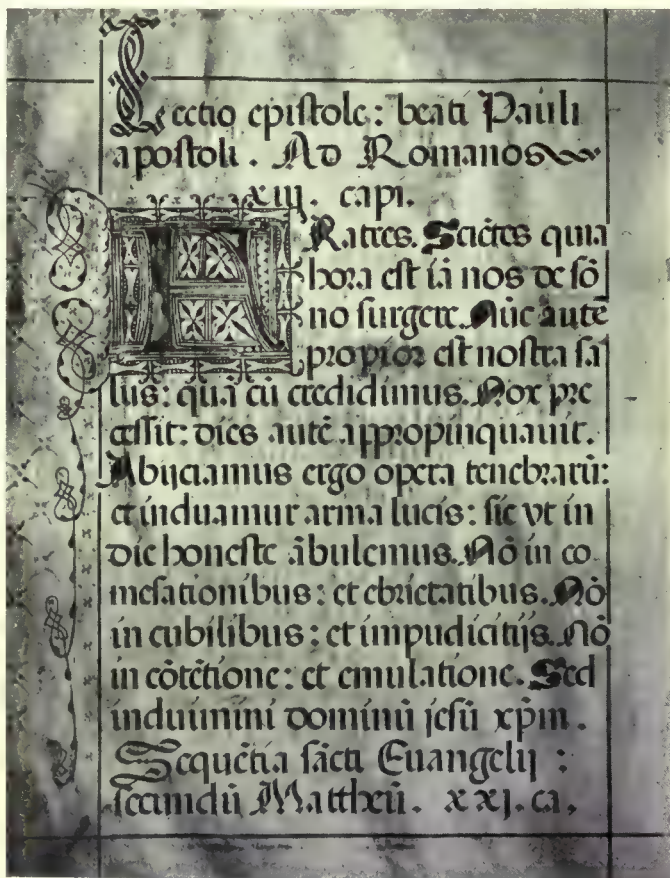 Lectio epistole: beati Pauli
apostoli. Ad Romanos
xiij. capi.
FRatres. Sciẽtes quia
hora est iã nos de sõ
no surgere. Nũc autẽ
propior est nostra sa
lus: quã cũ credidimus. Nox pre
cessit: dies autẽ appropinquauit.
Abijciamus ergo opera tenebrarũ:
et induamur arma lucis: sic vt in
die honeste ãbulemus. Nõ in co
mesationibus: et ebrietatibus. Nõ
in cubilibus: et impudicitijs. Nõ
in cõtẽtione: et emulatione. Sed
induimini dominũ jesũ xp̃m.
Sequẽtia sãcti Euangelij:
secundũ Mattheũ. xxj. ca.